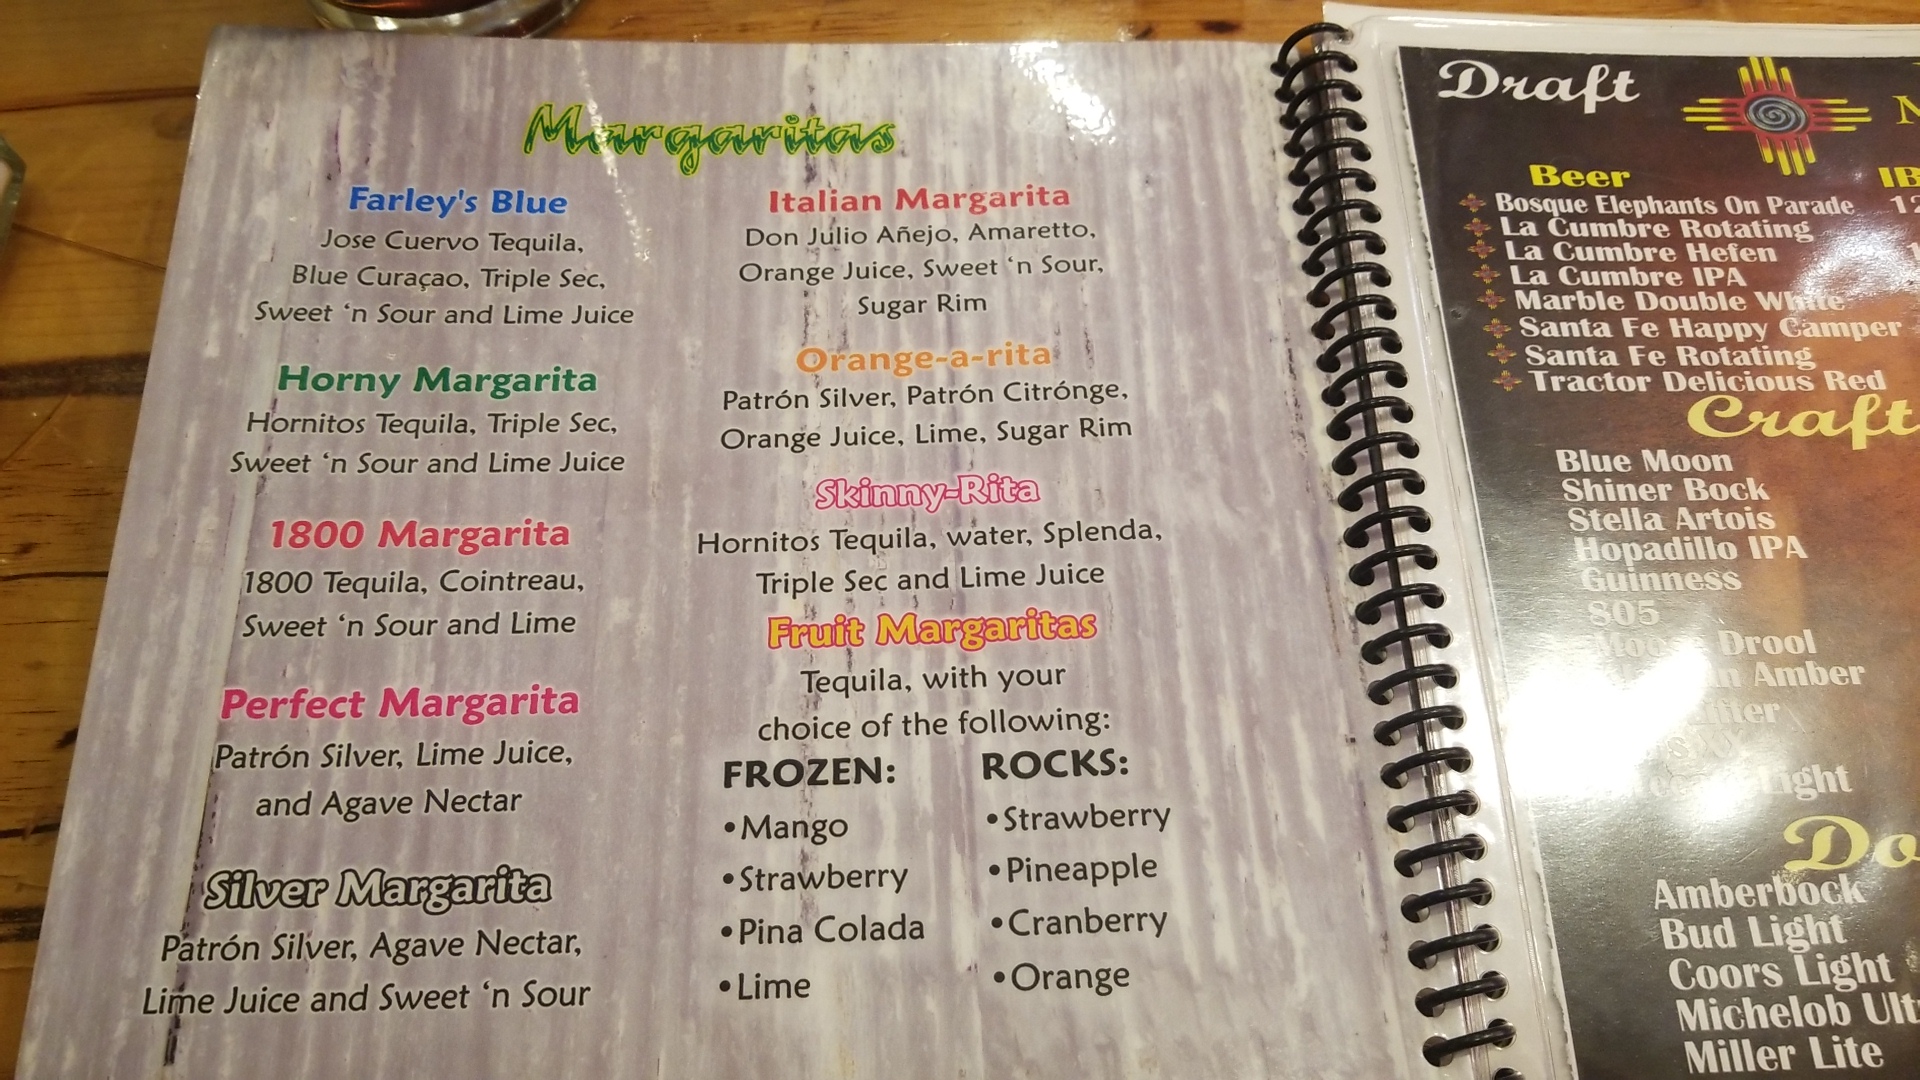 Margaritas
Farley's Blue
Jose Cuervo Tequila,
Blue Curaçao, Triple Sec,
Sweet ‘n Sour and Lime Juice
Horny Margarita
Hornitos Tequila, Triple Sec,
Sweet ‘n Sour and Lime Juice
1800 Margarita
1800 Tequila, Cointreau,
Sweet ‘n Sour and Lime
Perfect Margarita
Patrón Silver, Lime Juice,
and Agave Nectar
Silver Margarita
Patrón Silver, Agave Nectar,
Lime Juice and Sweet ‘n Sour
Italian Margarita
Don Julio Añejo, Amaretto,
Orange Juice, Sweet ‘n Sour,
Sugar Rim
Orange-a-rita
Patrón Silver, Patrón Citrónge,
Orange Juice, Lime, Sugar Rim
Skinny-Rita
Hornitos Tequila, water, Splenda,
Triple Sec and Lime Juice
Fruit Margaritas
Tequila, with your
choice of the following:
FROZEN:
•Mango
•Strawberry
•Pina Colada
•Lime
ROCKS:
•Strawberry
•Pineapple
•Cranberry
•Orange
Draft
Beer
Bosque Elephants On Parade
La Cumbre Rotating
La Cumbre Hefen
La Cumbre IPA
Marble Double White
Santa Fe Happy Camper
Santa Fe Rotating
Tractor Delicious Red
Craft
Blue Moon
Shiner Bock
Stella Artois
Hopadillo IPA
Guinness
805
Drool
Amber
Light
Amberbock
Bud Light
Coors Light
Michelob
Miller Lite